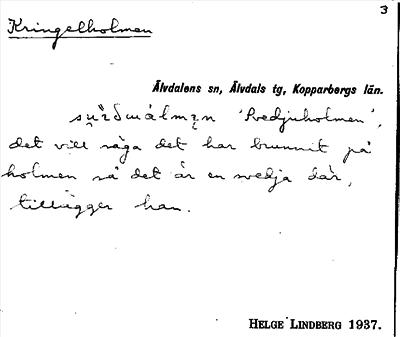 3
Kringelholmen
Älvdalens sn, Älvdals tg, Kopparbergs län.
'Svedjuholmen',
det vill säga det har brunnit på
holmen så det är en svedja där,
tillägger han.
HELGE LINDBERG 1937.